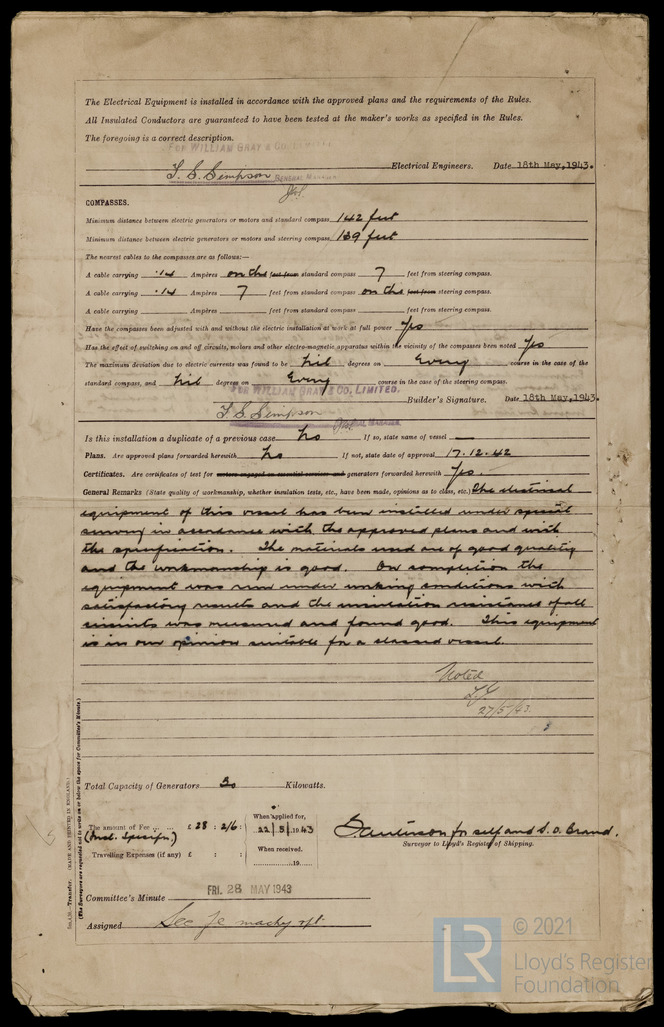 The Electrical Equipment is installed in accordance with the approved plans and the requirements of the Rules.
All Insulated Conductors are guaranteed to have been tested at the maker's works as specified in the Rules.
The foregoing is a correct description.
FOR WILLIAM GRAY & CO. LIMITED
Simpson GENERAL MANAGER Electrical Engineers. Date 18th May, 1943.
COMPASSES.
Minimum distance between electric generators or motors and standard compass 142 feet
Minimum distance between electric generators or motors and steering compass 139 feet
The nearest cables to the compasses are as follows:—
A cable carrying .14 Ampères on the feet from standard compass 7 feet from steering compass.
A cable carrying .14 Ampères 7 feet from standard compass on the feet from steering compass.
A cable carrying Ampères feet from standard compass feet from steering compass.
Have the compasses been adjusted with and without the electric installation at work at full power Yes
Has the effect of switching on and off circuits, motors and other electro-magnetic apparatus within the vicinity of the compasses been noted Yes
The maximum deviation due to electric currents was found to be Nil degrees on Every course in the case of the
standard compass, and Nil degrees on Every course in the case of the steering compass.
FOR WILLIAM GRAY & CO. LIMITED.
Simpson GENERAL MANAGER Builder's Signature. Date 18th May, 1943.
Is this installation a duplicate of a previous case No If so, state name of vessel —
Plans. Are approved plans forwarded herewith No If not, state date of approval 17.12.42
Certificates. Are certificates of test for motors engaged on essential services and generators forwarded herewith Yes.
General Remarks (State quality of workmanship, whether insulation tests, etc., have been made, opinions as to class, etc.) The electrical
equipment of this vessel has been installed under special
survey in accordance with the approved plans and with
the specification. The materials used are of good quality
and the workmanship is good. On completion the
equipment was run under working conditions with
satisfactory results and the insulation resistance of all
circuits was measured and found good. This equipment
is in our opinion suitable for a classed vessel.
Noted
27/5/43.
Total Capacity of Generators 30 Kilowatts.
The amount of Fee ... ... £ 28 : 2/6 : When applied for,
(Incl. Specifn.) 22/5/1943
Travelling Expenses (if any) £ : : When received,
19
for self and S. O. Brand.
Surveyor to Lloyd's Register of Shipping.
Committee's Minute FRI. 28 MAY 1943
Assigned See Je machy rpt.
Transfer. (MADE AND PRINTED IN ENGLAND.)
(The Surveyors are requested not to write on or below the space for Committee's Minute.)
LR
© 2021
Lloyd's Register
Foundation